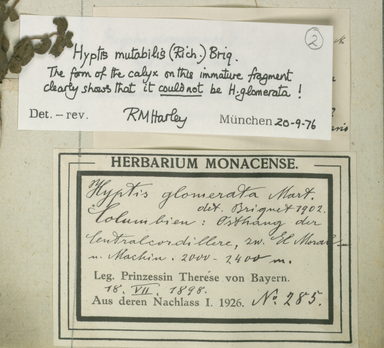 Hyptis mutabilis (Rich.) Briq.
2
The form of the calyx on this immature fragment
clearly shows that it could not be H. glomerata !
Det. – rev. RMHarley München 20-9-76
HERBARIUM MONACENSE.
Hyptis glomerata Mart.
det. Briquet 1902.
Columbien: Osthang der
Centralcordillere, zw. El Moral
u. Machin. 2000 - 2400 m.
Leg. Prinzessin Therese von Bayern.
18. VII. 1898.
Aus deren Nachlass I. 1926. No. 285.